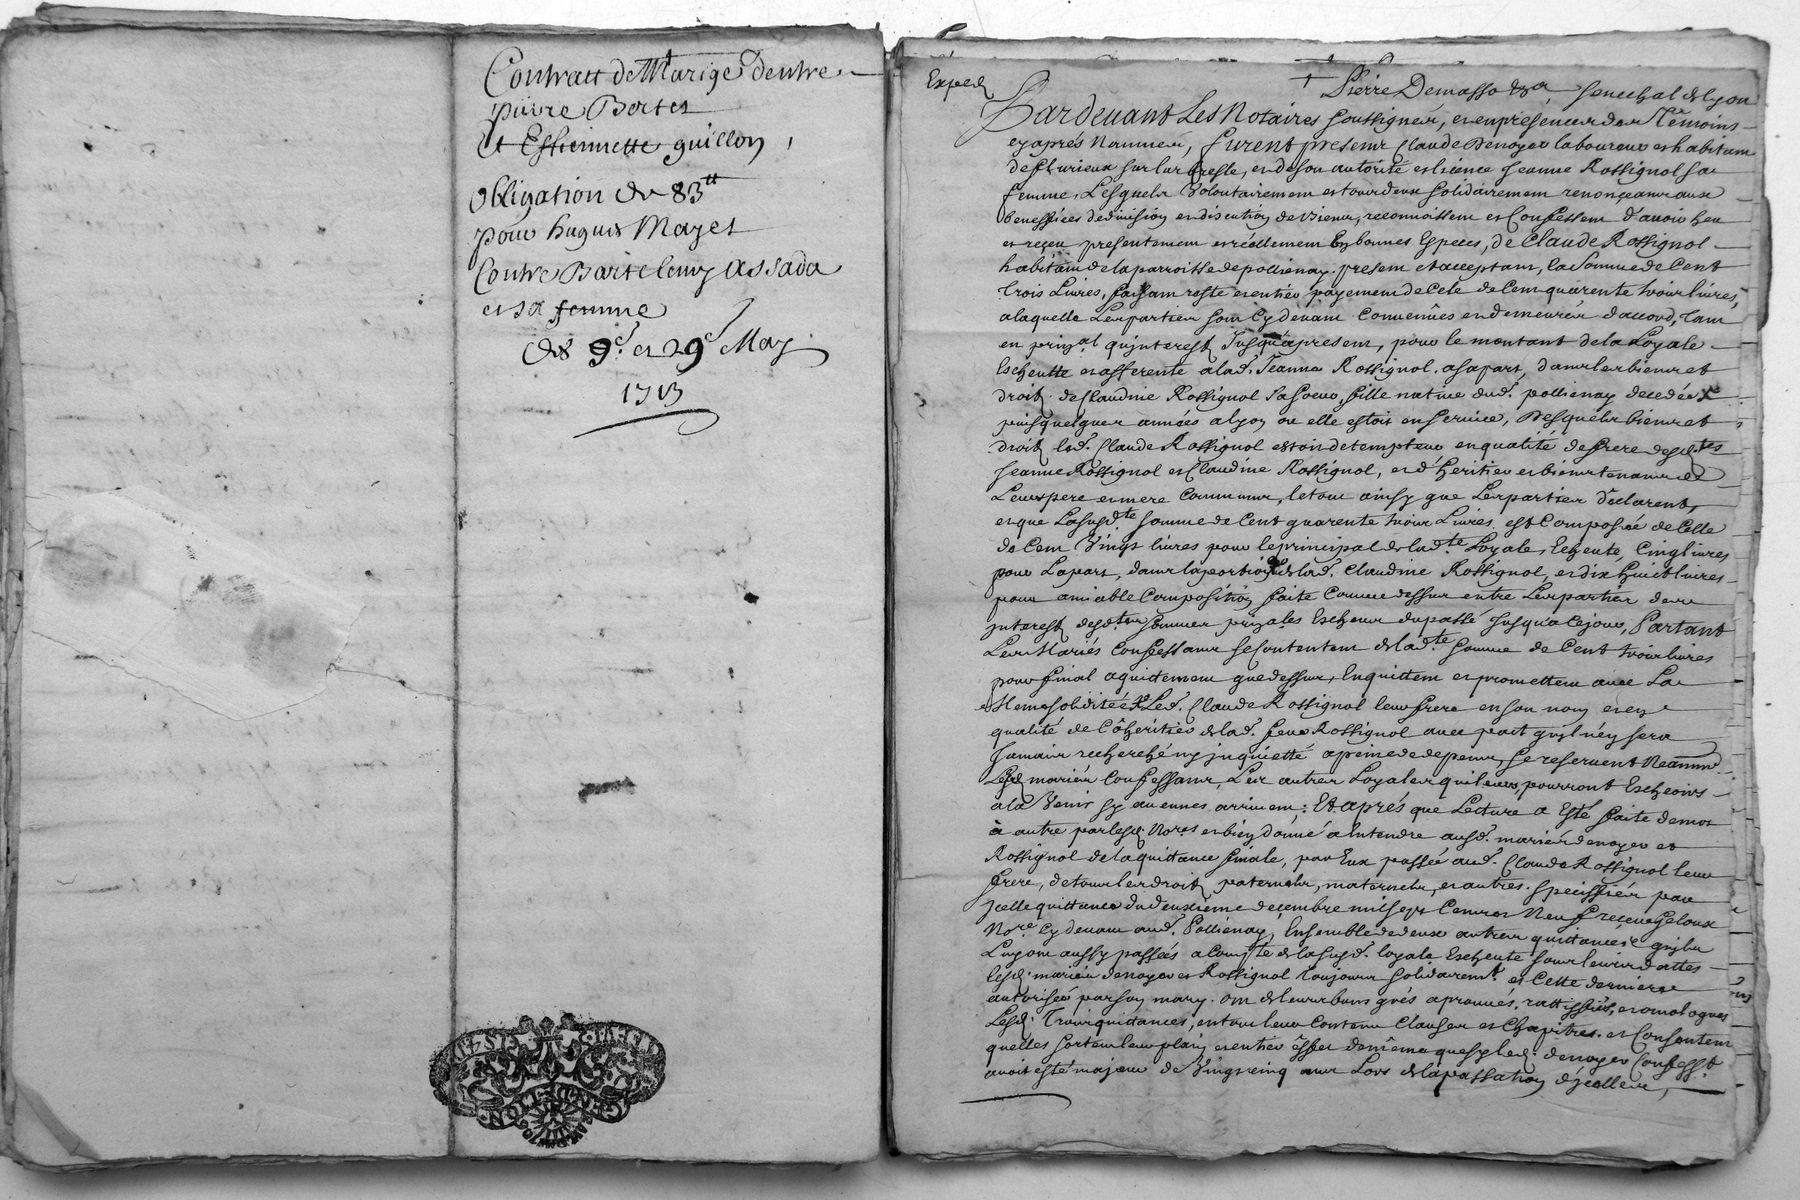 Contratt de Marige d'entre
pierre Berter
et Estiennette guillon,
obligation de 83 tt
pour hugues Mayet
Contre Bartelemy assada
et sa femme
des 9e et 29e May
1713
GENE LION
Exped
+ Pierre Demasso senechal de lyon
Pardevant Les Notaires soussignés, et en presence des Témoins
cy aprés Nommés, furent presens Claude Denoyer laboureur et habitant
de fleurieux sur larbresle, et de son autorité et licence Jeanne Rossignol sa
femme, Lesquels Volontairement et tous deux solidairement renonçeans aux
benefices de division et discution de biens, reconnoissent et Confessent d'avoir heu
et reçeu presentement et réellement En bonnes Especes, de Claude Rossignol
habitant de la parroisse de pollienay present et acceptant, la Somme de Cent
Trois Livres, faisant reste et entier payement de Celle de Cent quarente trois livres,
a laquelle Les parties sont Cy devant Convenües et demeurées d'accord, tant
en prinal qu'interest Jusqu'a present, pour le montant de la Loyale
Escheutte et afferente a lad. Jeanne Rossignol a sa part, dans les biens et
droits de Claudine Rossignol sa soeur, fille native dud. pollienay decedée
puis quelques années a lyon ou elle estoit en service, Desquels biens et
droits led. Claude Rossignol estoit detempteur en qualité de frere desd. tes
Jeanne Rossignol et Claudine Rossignol, et d'heritier et bientenant de
Leurs pere et mere Communs, le tout ainsy que Les parties déclarent,
et que La susd. te somme de Cent quarente trois Livres est Composée de Celle
de Cent Vingt livres pour le principal de lad. te Loyale Escheute, Cinq livres
pour La part, dans la portion de lad. Claudine Rossignol, et dix huict livres
pour amiable Composition faite Comme dessus entre Les parties des
interests desd. tes sommes prinales Escheus du passé Jusqu'a Ce jour, Partant
Les Mariés Confessans se Contentent de lad. te somme de Cent trois livres
pour final aquittement que dessus, En quittent et promettent avec La
Meme solidité Led. Claude Rossignol leur frere en son nom et en
qualité de Cohéritier de lad. feue Rossignol avec pact qu'il n'en sera
Jamais recherché ny inquietté a peine de depens, se reservent Neanmt
Lesd. mariés Confessans, Les autres Loyales qui leur pourront Escheoirs
a la Venir sy aucunes arrivent: Et aprés que Lecture a Esté faite de mot
à autre par lesd. Nores et bien donné a Entendre ausd. mariés denoyer et
Rossignol de la quittance finale, par Eux passée aud. Claude Rossignol leur
frere, de tous les droits paternels, maternels, et autres speciffiés par
jcelle quittance du deuxieme decembre mil sept Cent Neuf receue
Nore Cy devant aud. Pollienay, Ensemble de deux autres quittances qu'ils
Luy ont aussy passées a Compte de la susd. loyale Escheute sous leurs dattes
lesd. mariés denoyer et Rossignol toujours solidairemt et Cette derniere
autorisée par son mary, ont de leurs bons grés aprouvés, rattiffiés, et omologues
Lesd. Trois quittances, en tout leur Contenu Clauses et Chapitres et Consentent
quelles sortent leur plain et entier éffet de méme que sy led. denoyer Confesst
avoit esté majeur de Vingt cinq ans Lors de la passation d'jcelles,